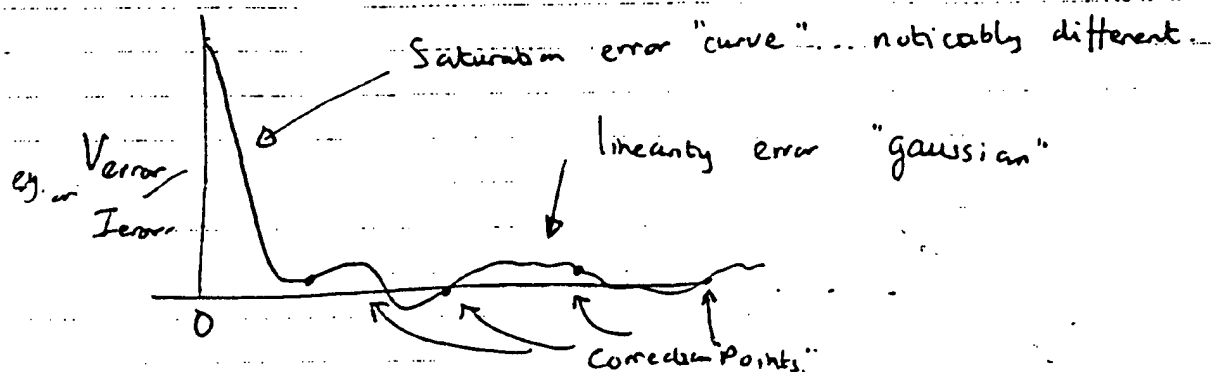 Saturation error "curve"... noticably different.
linearity error "gaussian"
eg. Verror
or Ierror
0
Correction Points"